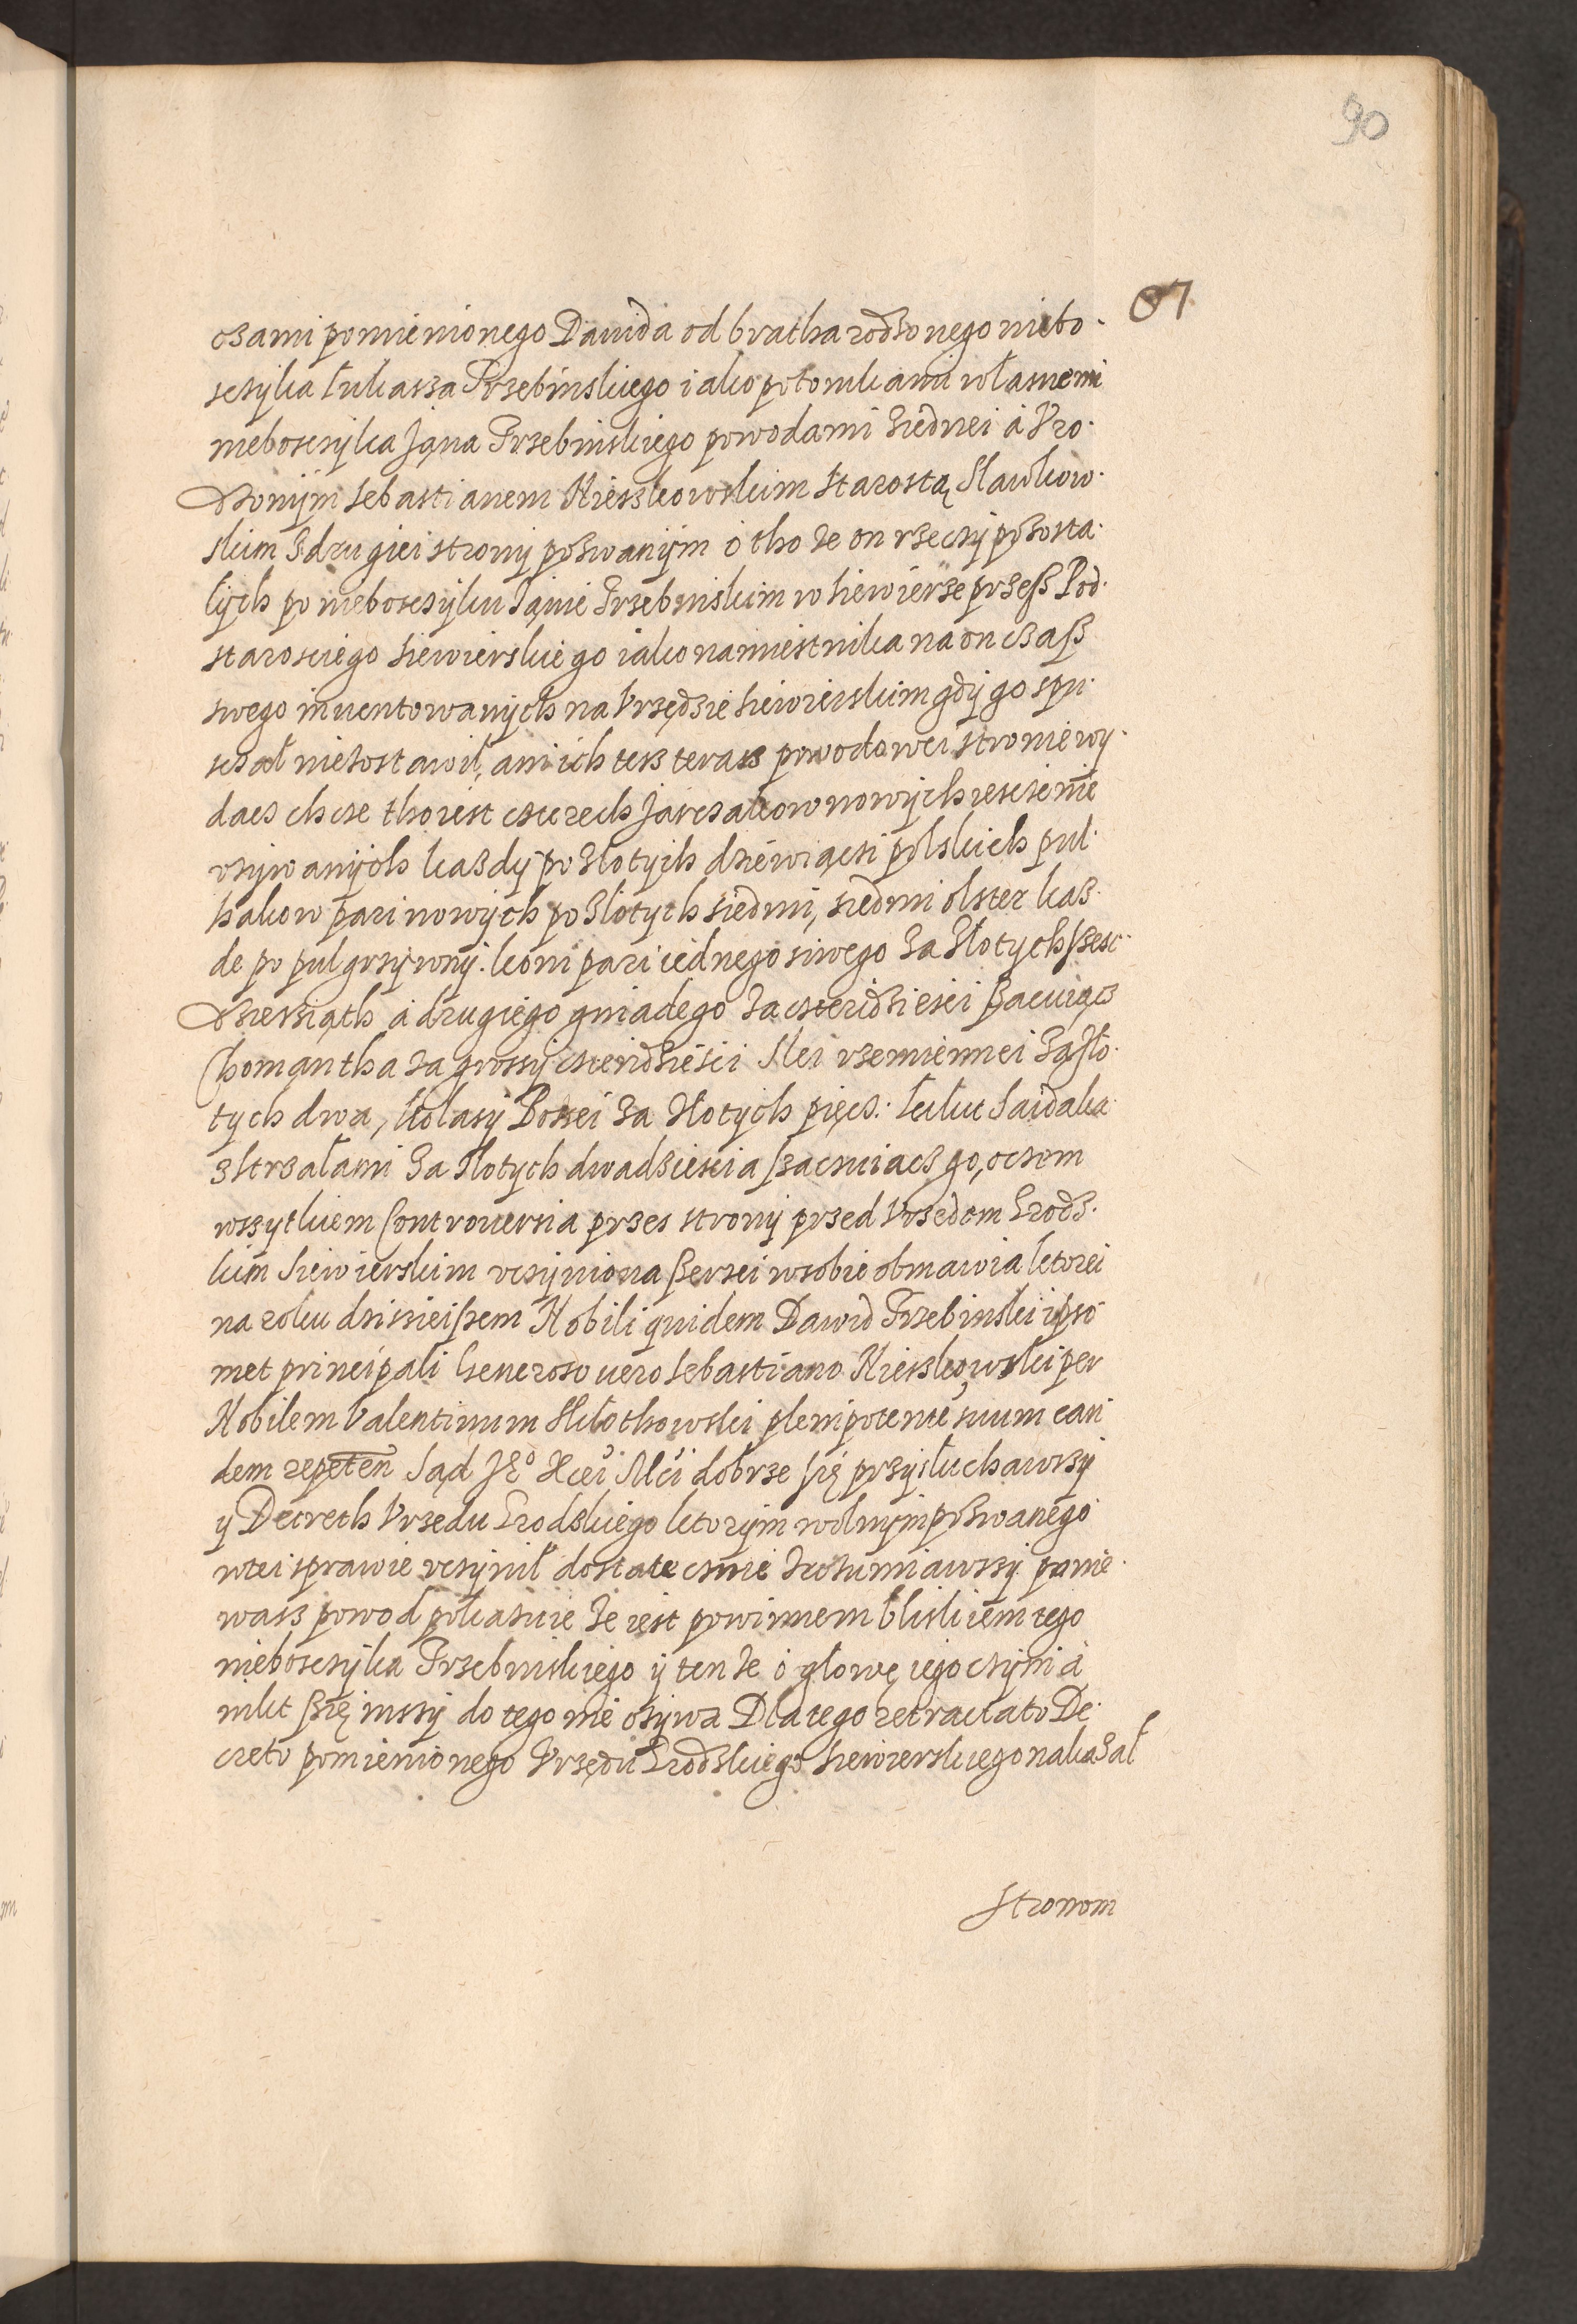 90
87
czami pomienionego Dawida od bratha rodzonego niebo·
sczyka Łukasza Trzebinskiego iako potomkami własnemi
nieboscyka Jąna Trzebinskiego powodami ziednei á Vro·
dzonÿm Sebastianem Nieszkowskim Starostą Sławkow·
skim zdrugiei stronÿ pozwanÿm ó tho że on rzeczÿ pozosta·
łÿch po niebosczÿku Jąnie Trzebinskim w Siewierze przess Pod·
starosciego Siewierskiego iako namiestnika na on czass
swego inuentowanÿch na Vrzędzie Siewierskim gdÿ go spu·
sczał nie zostawił, ani ich tesz terasz powodowei stronie wÿ·
dacz chcze tho iest czterech Járczakow nowÿch iescze nie
vzÿwanÿch kazdÿ po złotÿch dziéwiączi polskich pul·
hakow pari nowÿch po złotÿch siedmi, siedmi olster kaz·
de po pul grzÿwnÿ. koni pari iednego siwego za złotÿch szesc·
dziesiąth á drugiego gniadego za czteridziesci szacuiącz
Chomąntha za grossÿ czteridziesci Slei rzemiennei zazło·
tÿch dwa, Kolasÿ Bossei za złotÿch pięcz. Łuku Saidaka
z strzałami za złotÿch dwadziescia szacuiacz go, oczem
wszytkiem Controuersia przes stronÿ przed Vrzedem Grodz·
kim Siewierskim vczÿniona szerzei wsobie obmawia ktorei
na roku dzisieiszem Nobili quidem Dawid Trzebinski ipso
met principali Generoso uero Sebastiano Nieszkowski per
Nobilem Valentinum Skłothowski plenipotentē suum ean
dem repeteñ Sąd Jᵉᵒ Xcéi Mći dobrze się przÿsłuchawszÿ
ÿ Decreth Vrzędu Grodskiego ktorÿm wolnÿm pozwanego
wtei sprawie vczÿnił dostatecznie zrozumiawszÿ ponie·
wasz powod pokazuie że iest powinnem bliskiem tego
nieboscyka Trzebinskiego ÿ ten że ó głowę iego czÿni á
nikt szię inszÿ do tego nie ozÿwa Dlatego retractato De·
creto pomienionego Vrzędu Grodzkiego Siewierskiego nakazał
Stronom